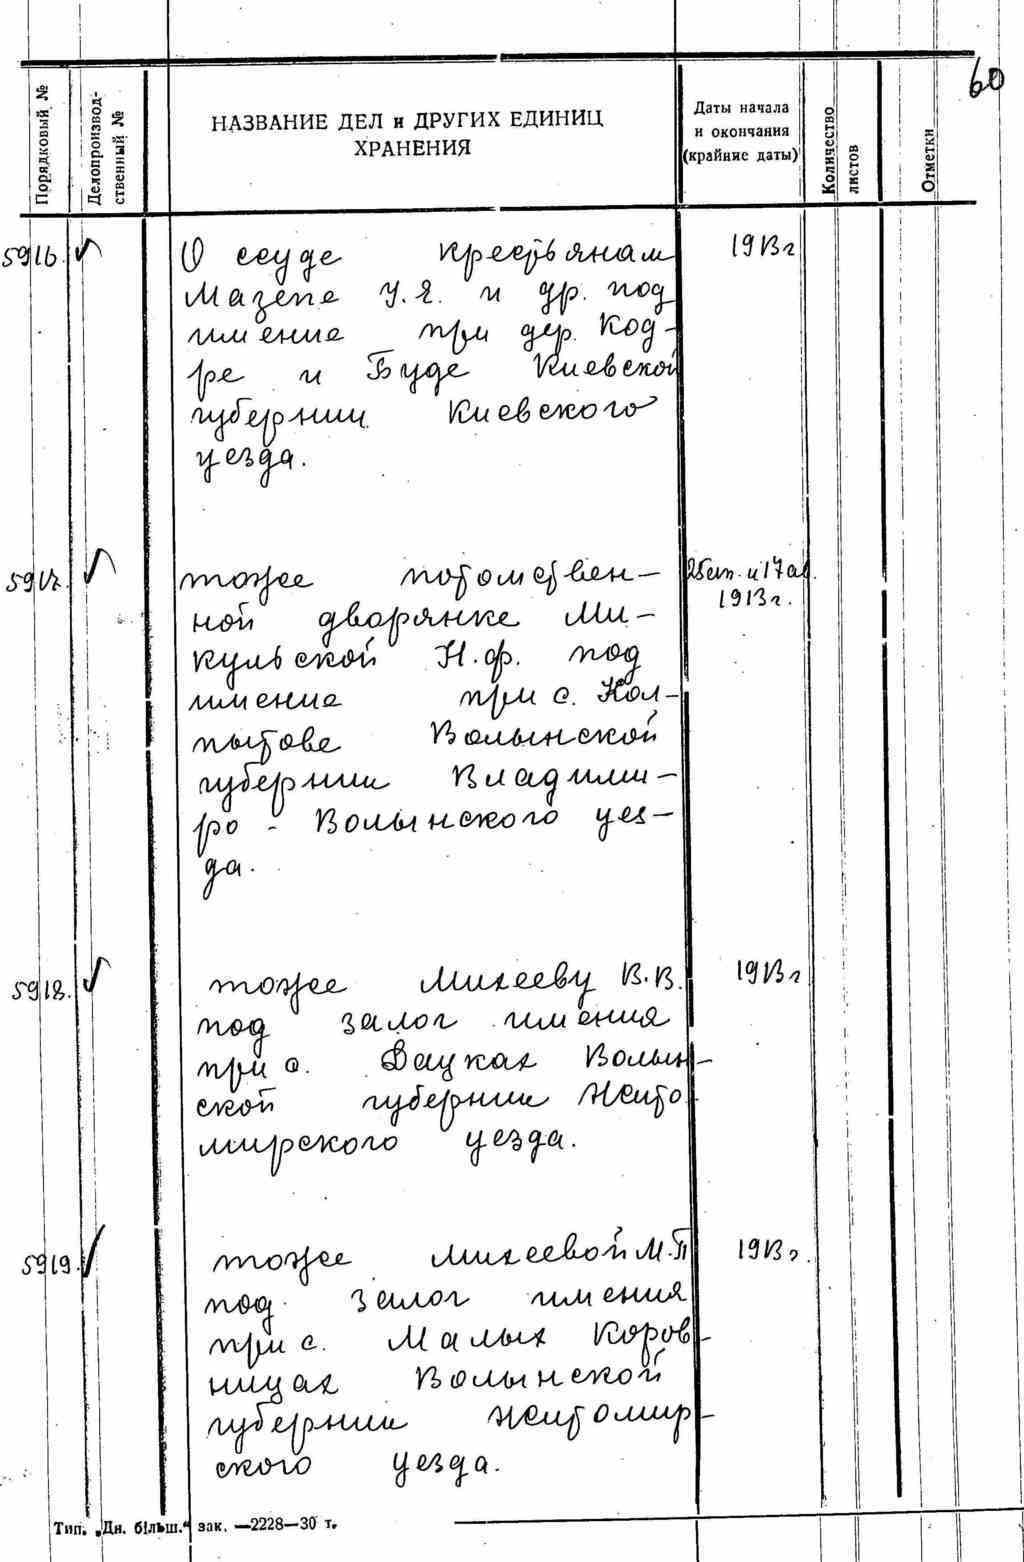 60
Порядковый №
Делопроизвод-
ственный №
НАЗВАНИЕ ДЕЛ и ДРУГИХ ЕДИНИЦ
ХРАНЕНИЯ
Даты начала
и окончания
(крайние даты)
Количество
листов
Отметки
5916. О ссуде крестьянам 1913г
Мазепе У.Я. и др. под
имение при дер. Код-
ре и Буде Киевской
губернии Киевского
уезда.
5917. тоже потомствен- и 17 ав.
ной дворянке Ми- 1913г.
кульской Н.Ф. под
имение при с. Кол-
пытове Волынской
губернии Владими-
ро - Волынского уез-
да.
5918. тоже Михееву В.В. 1913г
под залог имения
при с. Дацках Волын-
ской губернии Жито-
мирского уезда.
5919. тоже Михеевой М.П 1913г.
под залог имения
при с. Малых Коров-
ницах Волынской
губернии Житомир-
ского уезда.
Тип. „Дн. більш.“ зак. —2228—30 т.